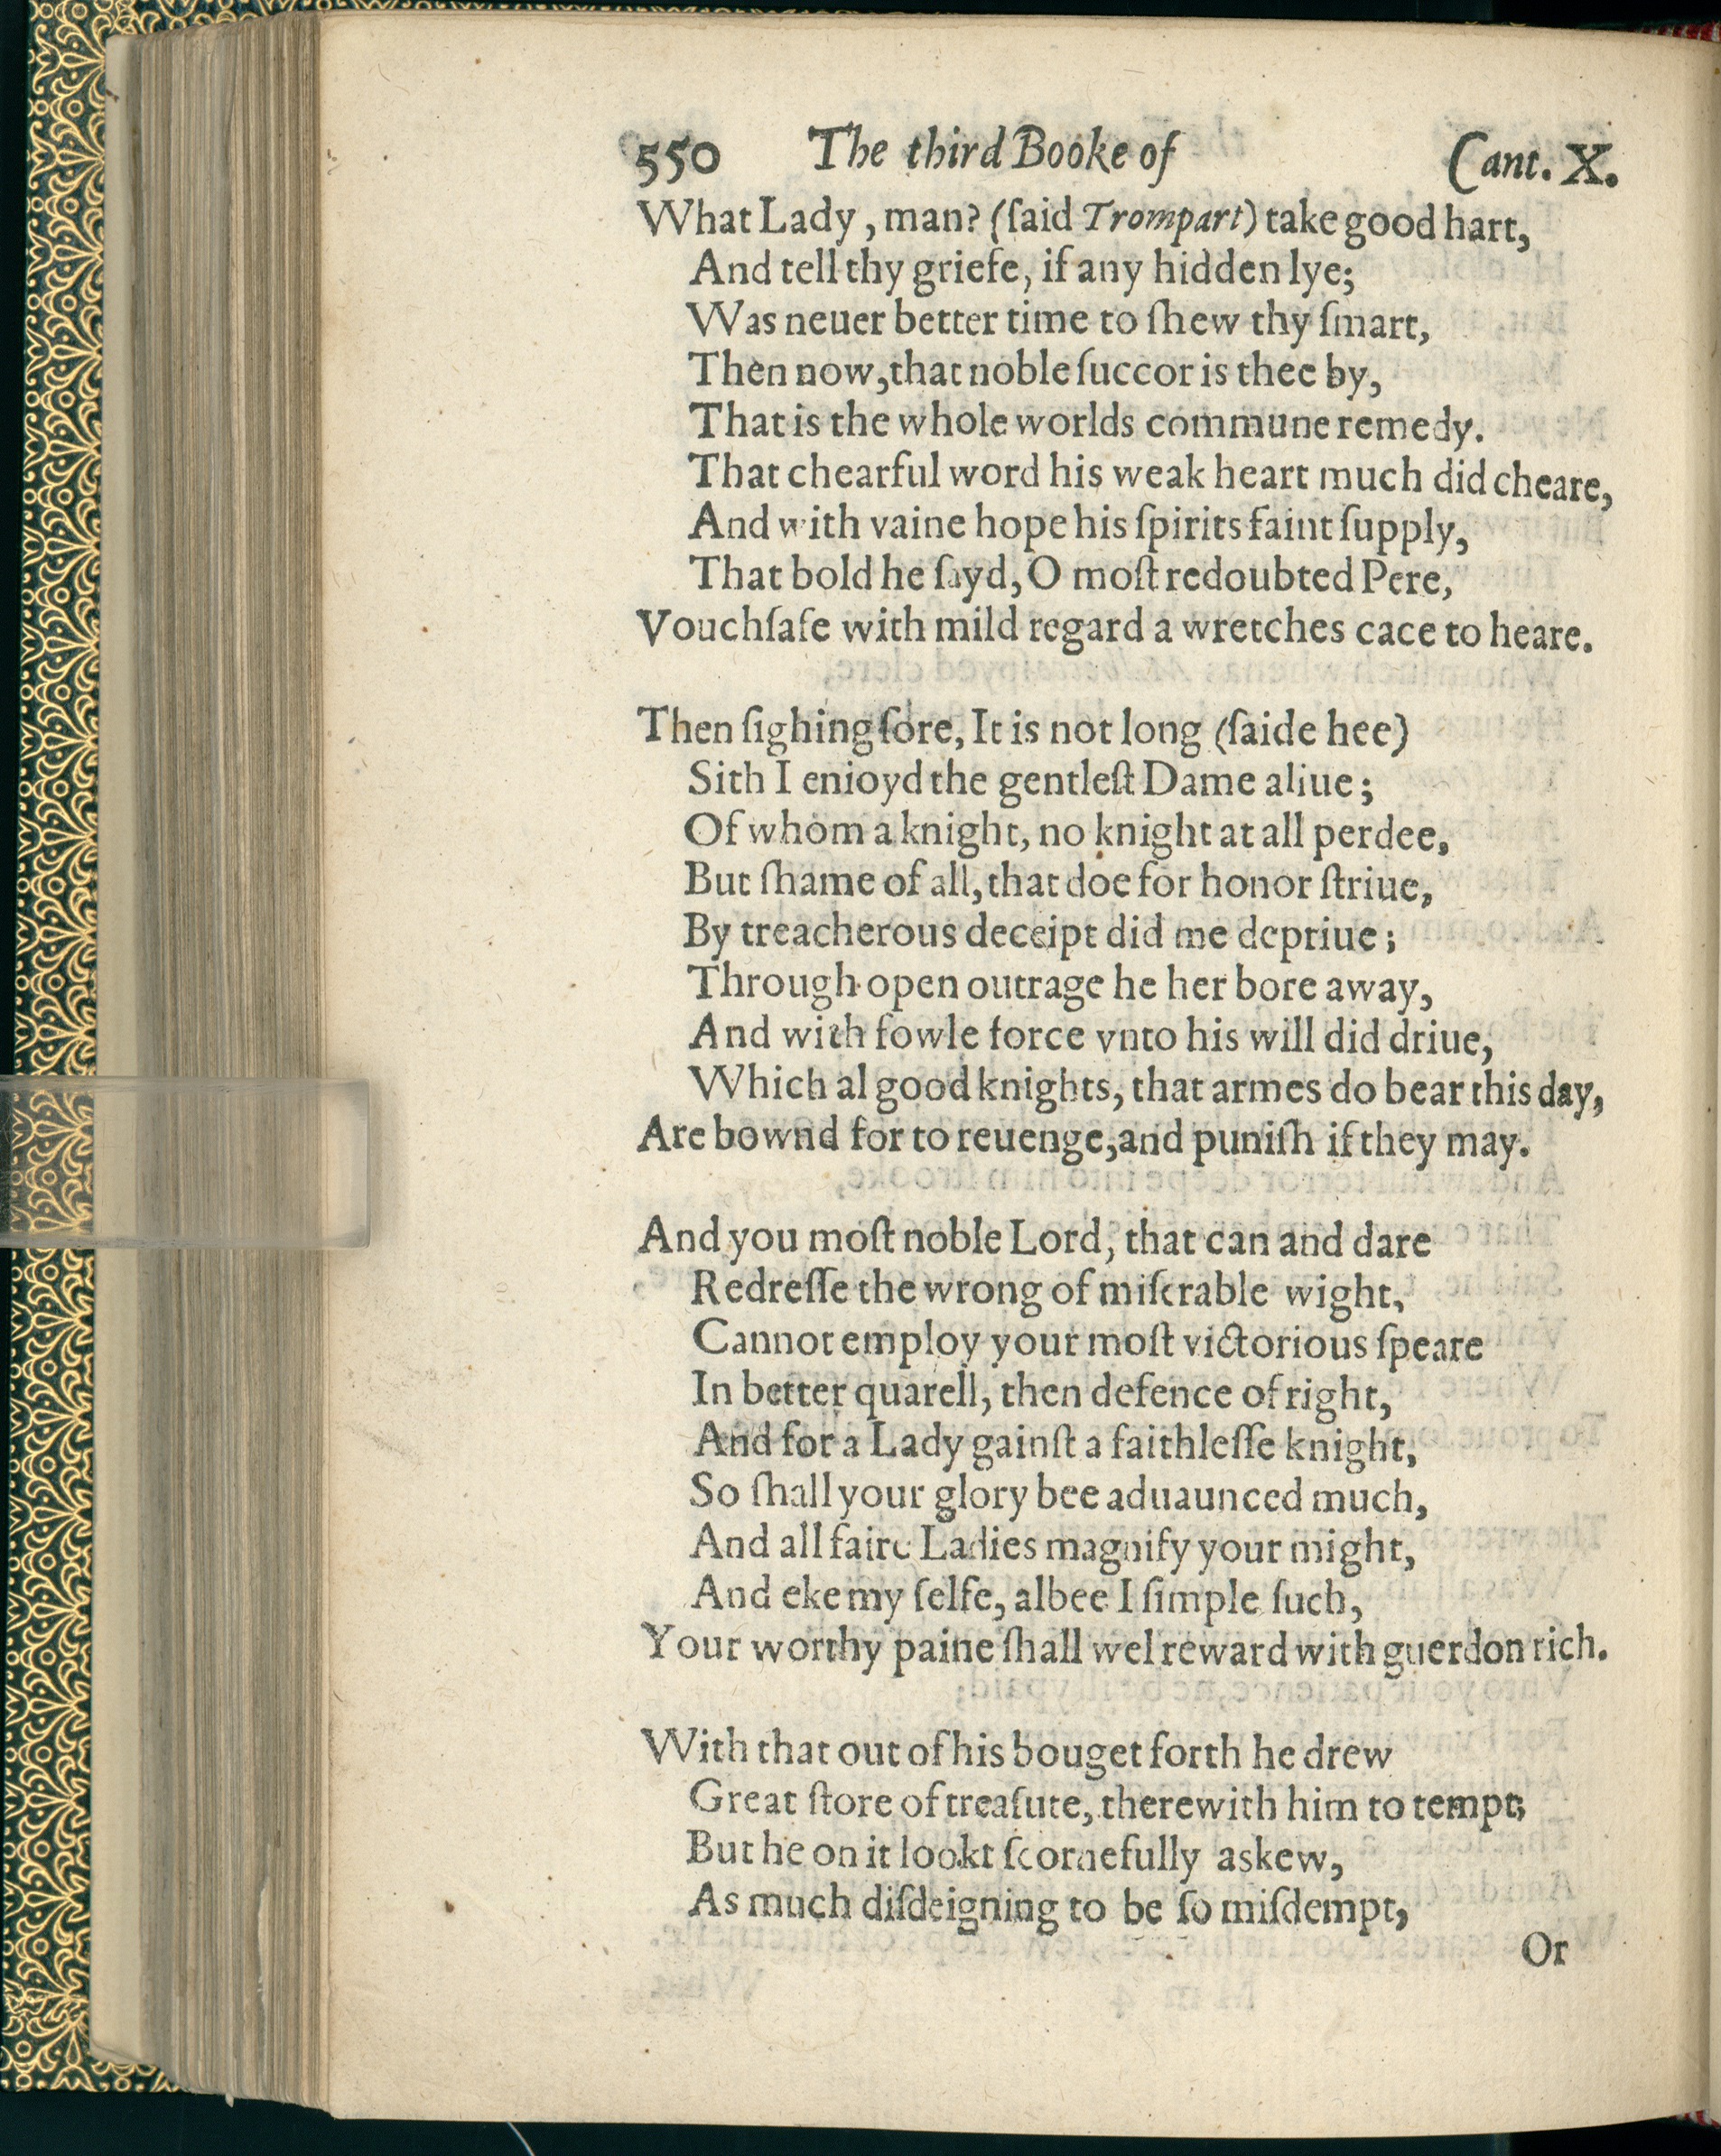 550 The third Booke of Cant. X.
What Lady, man? (ſaid Trompart) take good hart,
And tell thy griefe, if any hidden lye;
Was neuer better time to ſhew thy ſmart,
Then now, that noble ſuccor is thee by,
That is the whole worlds commune remedy.
That chearful word his weak heart much did cheare,
And with vaine hope his ſpirits faint ſupply,
That bold he ſayd, O moſt redoubted Pere,
Vouchſafe with mild regard a wretches cace to heare.
Then ſighing ſore, It is not long (ſaide hee)
Sith I enioyd the gentleſt Dame aliue;
Of whom a knight, no knight at all perdee,
But ſhame of all, that doe for honor ſtriue,
By treacherous deceipt did me depriue;
Through open outrage he her bore away,
And with fowle force vnto his will did driue,
Which al good knights, that armes do bear this day,
Are bownd for to reuenge, and puniſh if they may.
And you moſt noble Lord, that can and dare
Redreſſe the wrong of miſerable wight,
Cannot employ your moſt victorious ſpeare
In better quarell, then defence of right,
And for a Lady gainſt a faithleſſe knight,
So ſhall your glory bee aduaunced much,
And all faire Ladies magnify your might,
And eke my ſelfe, albee I ſimple ſuch,
Your worthy paine ſhall wel reward with guerdon rich.
With that out of his bouget forth he drew
Great ſtore of treaſure, therewith him to tempt;
But he on it lookt ſcornefully askew,
As much diſdeigning to be ſo miſdempt,
Or